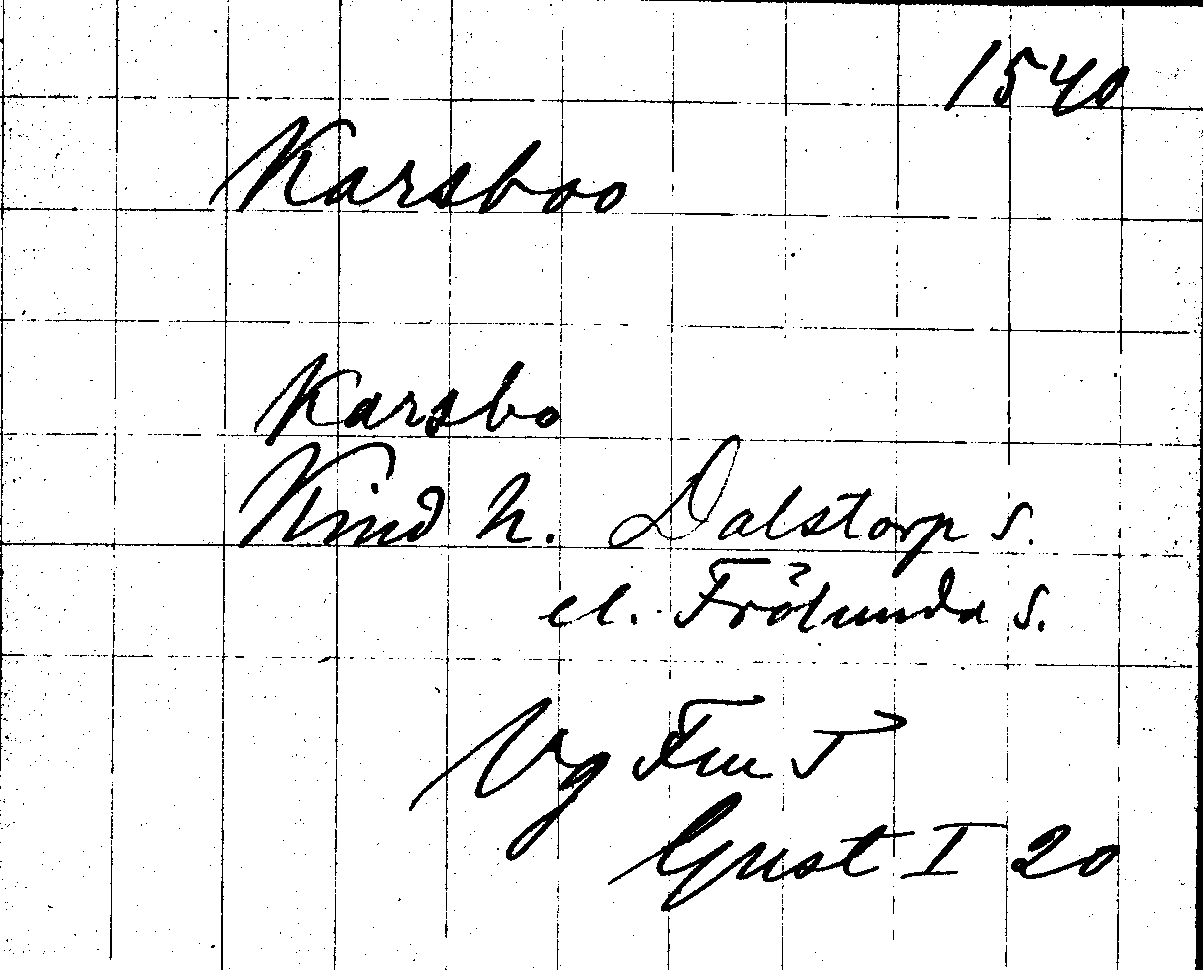 1540
Karsboo
Karsbo
Kind h. Dalstorp s.
el. Frölunda s.
Vg Fru T
Gust I 20